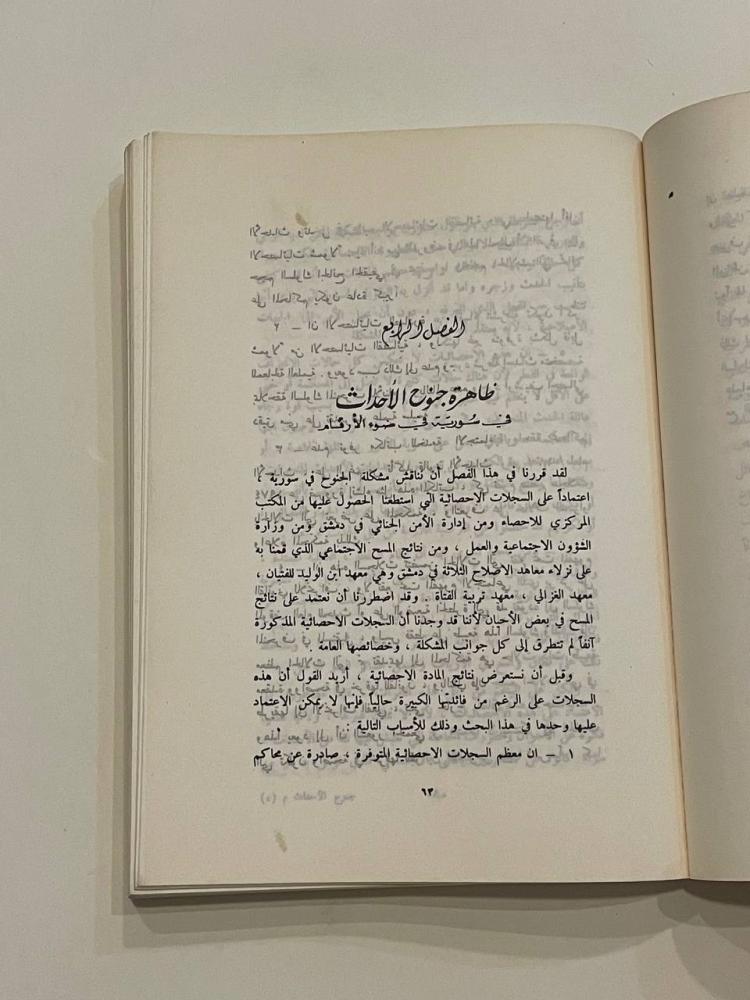 الفصل الرابع
ظاهرة جنوح الأحداث
في سورية في ضوء الأرقام
لقد قررنا في هذا الفصل أن نناقش مشكلة الجنوح في سورية ،
اعتماداً على السجلات الاحصائية التي استطعنا الحصول عليها من المكتب
المركزي للاحصاء ومن إدارة الأمن الجنائي في دمشق ومن وزارة
الشؤون الاجتماعية والعمل ، ومن نتائج المسح الاجتماعي الذي قمنا به
على نزلاء معاهد الاصلاح الثلاثة في دمشق وهي معهد ابن الوليد للفتيان ،
معهد الغزالي ، معهد تربية الفتاة . وقد اضطررنا أن نعتمد على نتائج
المسح في بعض الأحيان لأننا قد وجدنا أن السجلات الاحصائية المذكورة
آنفاً لم تتطرق إلى كل جوانب المشكلة ، وخصائصها العامة .
وقبل أن نستعرض نتائج المادة الاحصائية ، أريد القول أن هذه
السجلات على الرغم من فائدتها الكبيرة حالياً فإنها لا يمكن الاعتماد
عليها وحدها في هذا البحث وذلك للأسباب التالية :
١ – ان معظم السجلات الاحصائية المتوفرة ، صادرة عن محاكم
٦٣